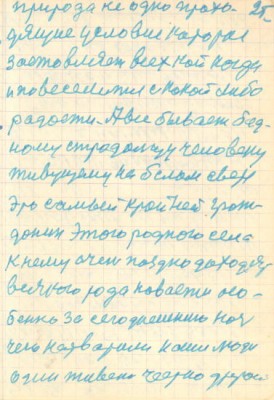 природа не одно прохо- 25
дящие условие которое
заставляет всех кой когда
и повеселится с какой либо
радости. А вы бывает бед-
ному страдающему человеку
живущему на белом свете
Это самый крайней граж-
данин этого родного села
к нему очен поздно доходят
всякого рода новости осо-
бенно за сегоднешнию ноч
чего натварили наши люди
один живет через дорогой